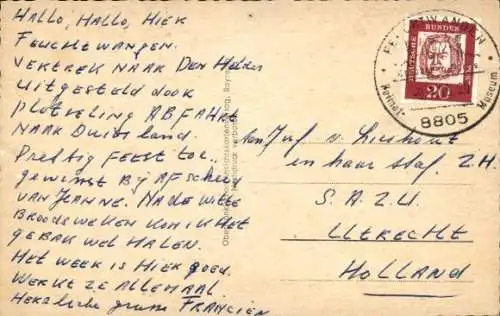 HALLO, HALLO, HIER
FEUCHTWANGEN.
VERTREK NAAR DEN Helder
UITGESTELD DOOR
PLOTSELING ABFAHRT
NAAR Duitsland.
Prettig FEEST toe..
gewenst Bij AFscheid
VAN JEANNE. NA DE WITTE
BROODSWEKEN KOM IK HET
GEBAK WEL HALEN.
HET WEER IS HIER goed.
WERKT ZE ALLEMAAL.
HERZliche grüsse FRANCIEN
aan Juf v. Lieshout
en haar staf. Z.H.
S.A.Z.U
UTRECHT
HOLLAND
FEUCHTWANGEN
Heimat-
Museum
8805
DEUTSCHE
BUNDES
20